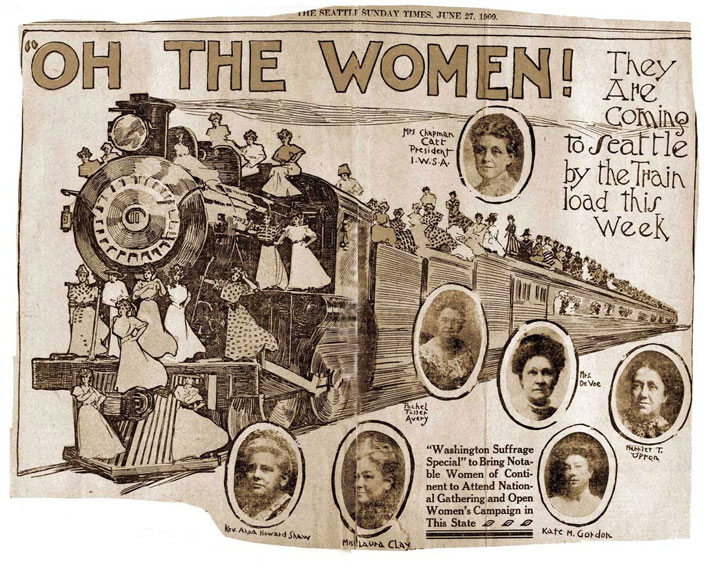 THE SEATTLE SUNDAY TIMES, JUNE 27, 1909.
"OH THE WOMEN!
They
Are
coming
to Seattle
by the Train
load this
Week
Mrs Chapman
Catt
President
I.W.S.A.
Rachel
Foster
Avery
Mrs.
De Voe
Harriet T.
Upton
"Washington Suffrage
Special" to Bring Nota-
ble Women of Conti-
nent to Attend Nation-
al Gathering and Open
Women's Campaign in
This State
Rev. Anna Howard Shaw
Miss Laura Clay
Kate M. Gordon